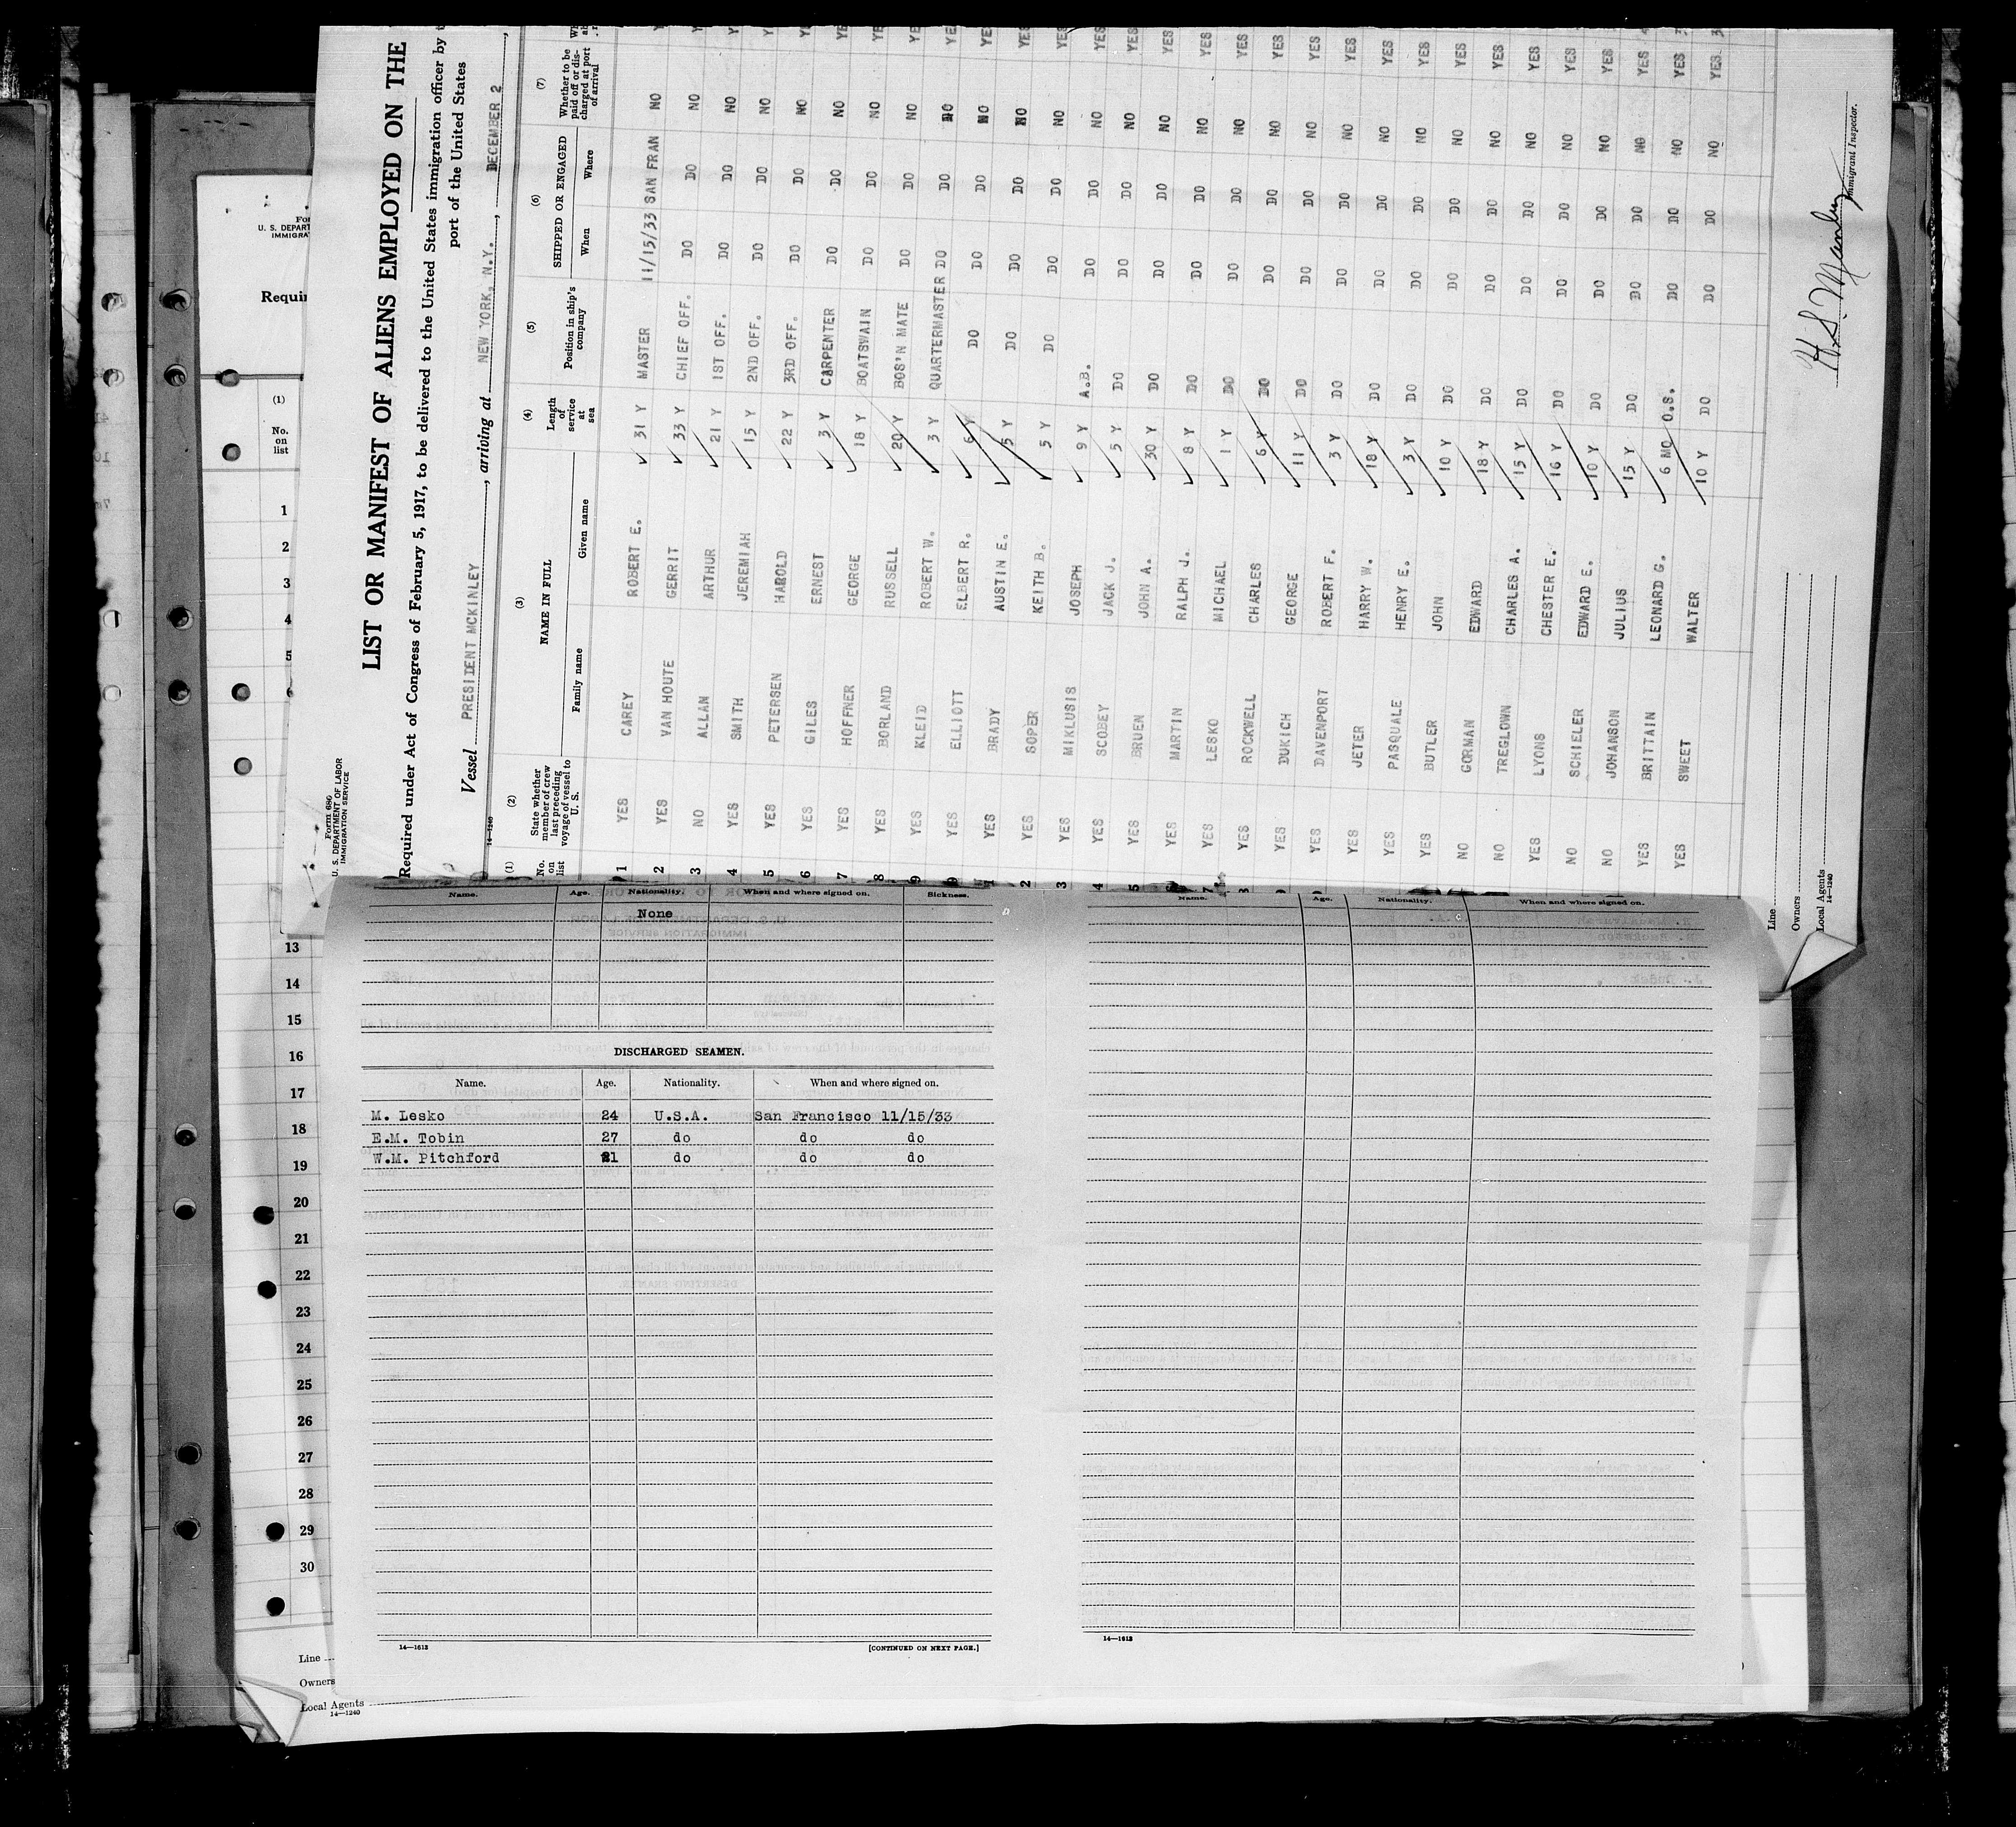 Form 680
U. S. DEPARTMENT OF LABOR
IMMIGRATION SERVICE
LIST OR MANIFEST OF ALIENS EMPLOYED ON THE
Required under Act of Congress of February 5, 1917, to be delivered to the United States immigration officer by
port of the United States
Vessel PRESIDENT MCKINLEY, arriving at NEW YORK, N.Y., DECEMBER 2
14-1240
(1) (2) (3) (4) (5) (6) (7)
No. on list State whether member of crew last preceding voyage of vessel to U. S. NAME IN FULL Length of service at sea Position in ship's company SHIPPED OR ENGAGED Whether to be paid off or discharged at port of arrival
Family name Given name When Where
1 YES CAREY ROBERT E. 31 Y MASTER 11/15/33 SAN FRAN NO
2 YES VAN HOUTE GERRIT 33 Y CHIEF OFF. DO DO NO
3 NO ALLAN ARTHUR 21 Y 1ST OFF. DO DO NO
4 YES SMITH JEREMIAH 15 Y 2ND OFF. DO DO NO
5 YES PETERSEN HAROLD 22 Y 3RD OFF. DO DO NO
6 YES GILES ERNEST 3 Y CARPENTER DO DO NO
7 YES HOFFNER GEORGE 18 Y BOATSWAIN DO DO NO
8 YES BORLAND RUSSELL 20 Y BOS'N MATE DO DO NO
9 YES KLEID ROBERT W. 3 Y QUARTERMASTER DO DO NO
YES ELLIOTT ELBERT R. 6 Y DO DO DO NO YES
1 YES BRADY AUSTIN E. 5 Y DO DO DO NO YES
2 YES SOPER KEITH B. 5 Y DO DO DO NO YES
3 YES MIKLUSIS JOSEPH 9 Y A.B. DO DO NO YES
4 YES SCOBEY JACK J. 5 Y DO DO DO NO YES
5 YES BRUEN JOHN A. 30 Y DO DO DO NO YES
YES MARTIN RALPH J. 8 Y DO DO DO NO YES
YES LESKO MICHAEL 1 Y DO DO DO NO YES
YES ROCKWELL CHARLES 6 Y DO DO DO NO YES
YES DUKICH GEORGE 11 Y DO DO DO NO YES
YES DAVENPORT ROBERT F. 3 Y DO DO DO NO YES
YES JETER HARRY W. 18 Y DO DO DO NO YES
YES PASQUALE HENRY E. 3 Y DO DO DO NO YES
YES BUTLER JOHN 10 Y DO DO DO NO YES
NO GORMAN EDWARD 18 Y DO DO DO NO YES
NO TREGLOWN CHARLES A. 15 Y DO DO DO NO YES
YES LYONS CHESTER E. 16 Y DO DO DO NO YES
NO SCHIELER EDWARD E. 10 Y DO DO DO NO YES
NO JOHANSON JULIUS 15 Y DO DO DO NO YES
YES BRITTAIN LEONARD G. 6 MO O.S. DO DO NO YES
YES SWEET WALTER 10 Y DO DO DO NO YES
Line
Owners
Local Agents
14-1240
H.S. Manley
Immigrant Inspector.
U. S. DEPART
IMMIGRA
Requir
(1)
No. on list
1
2
3
4
5
6
Name. Age. Nationality. When and where signed on. Sickness.
None
DISCHARGED SEAMEN.
Name. Age. Nationality. When and where signed on.
M. Lesko 24 U.S.A. San Francisco 11/15/33
E.M. Tobin 27 do do do
W.M. Pitchford 21 do do do
14—1613 [CONTINUED ON NEXT PAGE.]
Name. Age. Nationality. When and where signed on.
14—1613
13
14
15
16
17
18
19
20
21
22
23
24
25
26
27
28
29
30
Line
Owners
Local Agents
14—1240